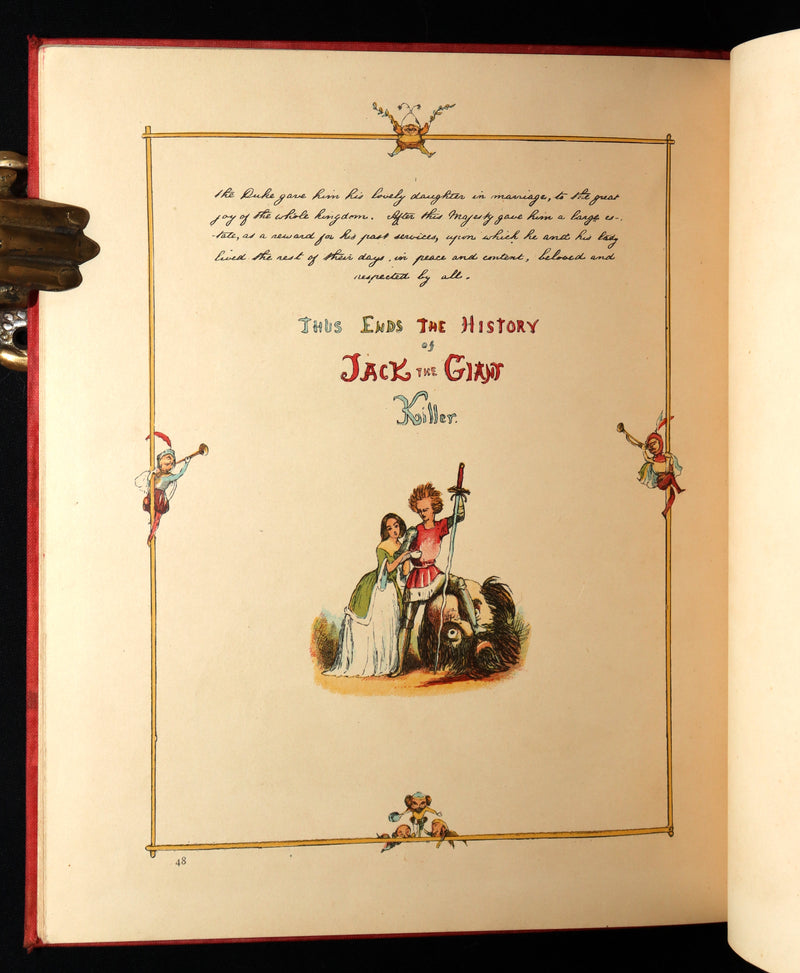 the Duke gave him his lovely daughter in marriage, to the great
joy of the whole kingdom. After this Majesty gave him a large es-
-tate, as a reward for his past services, upon which he and his lady
lived the rest of their days, in peace and content, beloved and
respected by all.
THUS ENDS THE HISTORY
of
JACK THE GIANT
Killer.
48